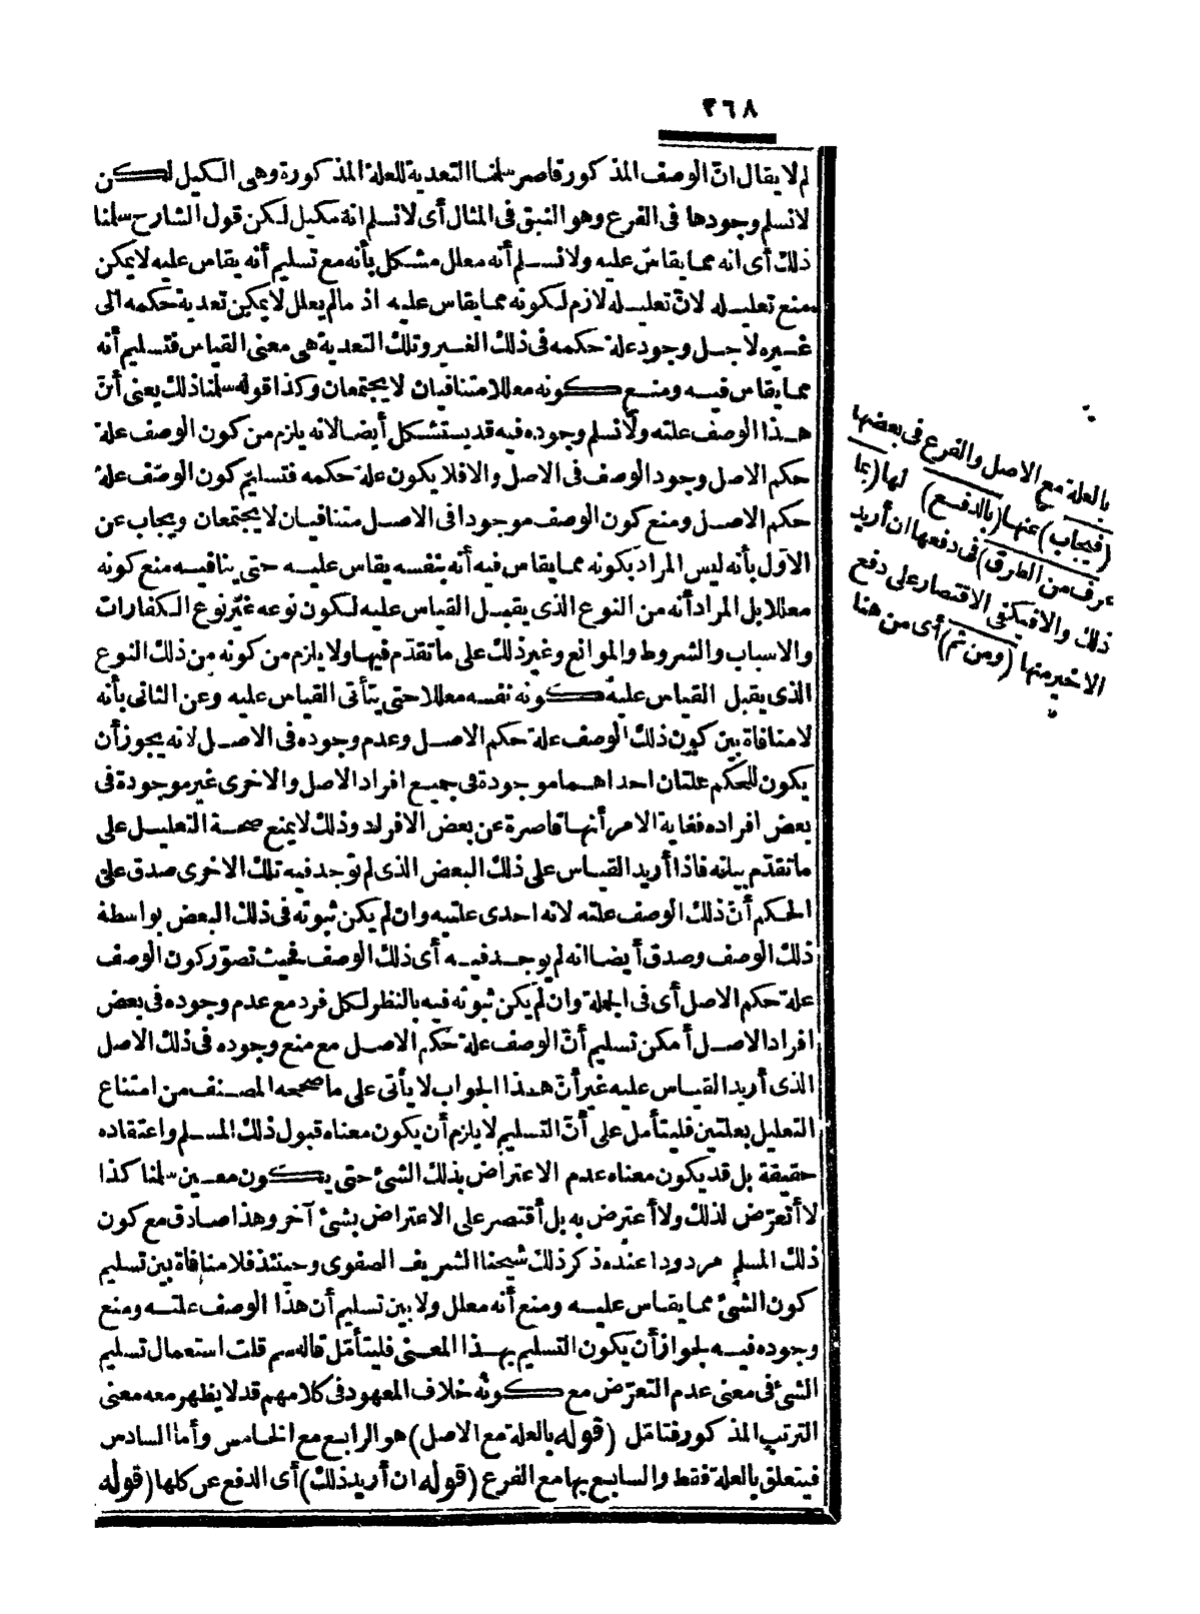 ٣٦٨
لم لا يقال انّ الوصف المذكور قاصر سلنا التعدية للعلة المذكورة وهى الكيل لكن
لا نسلم وجودها فى الفرع وهو النبق فى المثال أى لا نسلم انه مكيل لكن قول الشارح سلنا
ذلك أى انه مما يقاس عليه ولا نسلم أنه معلل مشكل بأنه مع تسليم أنه يقاس عليه لا يمكن
منع تعليله لانّ تعليله لازم لكونه مما يقاس عليه اذ ما لم يعلل لا يمكن تعدية حكمه الى
غيره لاجل وجود علة حكمه فى ذلك الغير وتلك التعدية هى معنى القياس فتسليم أنه
مما يقاس فيه ومنع كونه معللا متنافيان لا يجتمعان وكذا قوله سلنا ذلك يعنى أنّ
هذا الوصف علته ولا نسلم وجوده فيه قد يستشكل أيضا لانه يلزم من كون الوصف علة
حكم الاصل وجود الوصف فى الاصل والا فلا يكون علة حكمه فتسليم كون الوصف علة
حكم الاصل ومنع كون الوصف موجودا فى الاصل متنافيان لا يجتمعان ويجاب عن
الاوّل بأنه ليس المراد بكونه مما يقاس فيه أنه بنفسه يقاس عليه حتى ينافيه منع كونه
معللا بل المراد أنه من النوع الذى يقبل القياس عليه لكون نوعه غير نوع الكفارات
والاسباب والشروط والموانع وغير ذلك على ما تقدّم فيها ولا يلزم من كونه من ذلك النوع
الذى يقبل القياس عليه كونه نفسه معللا حتى يتأتى القياس عليه وعن الثانى بأنه
لا منافاة بين كون ذلك الوصف علة حكم الاصل وعدم وجوده فى الاصل لانه يجوز أن
يكون للحكم علتان احداهما موجودة فى جميع افراد الاصل والاخرى غير موجودة فى
بعض افراده فغاية الامر أنها قاصرة عن بعض الافراد وذلك لا يمنع صحة التعليل على
ما تقدّم بيانه فاذا أريد القياس على ذلك البعض الذى لم توجد فيه تلك الاخرى صدق على
الحكم أنّ ذلك الوصف علته لانه احدى علتيه وان لم يكن ثبوته فى ذلك البعض بواسطة
ذلك الوصف وصدق أيضا انه لم يوجد فيه أى ذلك الوصف فحيث تصوّر كون الوصف
علة حكم الاصل أى فى الجملة وان لم يكن ثبوته فيه بالنظر لكل فرد مع عدم وجوده فى بعض
افراد الاصل أمكن تسليم أنّ الوصف علة حكم الاصل مع منع وجوده فى ذلك الاصل
الذى أريد القياس عليه غير أنّ هذا الجواب لا يأتى على ما صححه المصنف من امتناع
التعليل بعلتين فليتأمل على أنّ التسليم لا يلزم أن يكون معناه قبول ذلك المسلم واعتقاده
حقيقة بل قد يكون معناه عدم الاعتراض بذلك الشئ حتى يكون معنى سلنا كذا
لا أتعرّض لذلك ولا أعترض به بل أقتصر على الاعتراض بشئ آخر وهذا صادق مع كون
ذلك المسلم مردودا عنده ذكر ذلك شيخنا الشريف الصفوى وحينئذ فلا منافاة بين تسليم
كون الشئ مما يقاس عليه ومنع أنه معلل ولا بين تسليم أن هذا الوصف علته ومنع
وجوده فيه لجواز أن يكون التسليم بهذا المعنى فليتأمّل قاله سم قلت استعمال تسليم
الشئ فى معنى عدم التعرّض مع كونه خلاف المعهود فى كلامهم قد لا يظهر معه معنى
الترتب المذكور فتامّل (قوله بالعلة مع الاصل) هو الرابع مع الخامس وأما السادس
فيتعلق بالعلة فقط والسابع بها مع الفرع (قوله ان أريد ذلك) أى الدفع عن كلها (قوله
بالعلة مع الاصل والفرع فى بعضها
(فيجاب) عنها (بالدفع) لها (بما
عرف من الطرق) فى دفعها ان أريد
ذلك والا فيكفى الاقتصار على دفع
الاخير منها (ومن ثم) أى من هنا